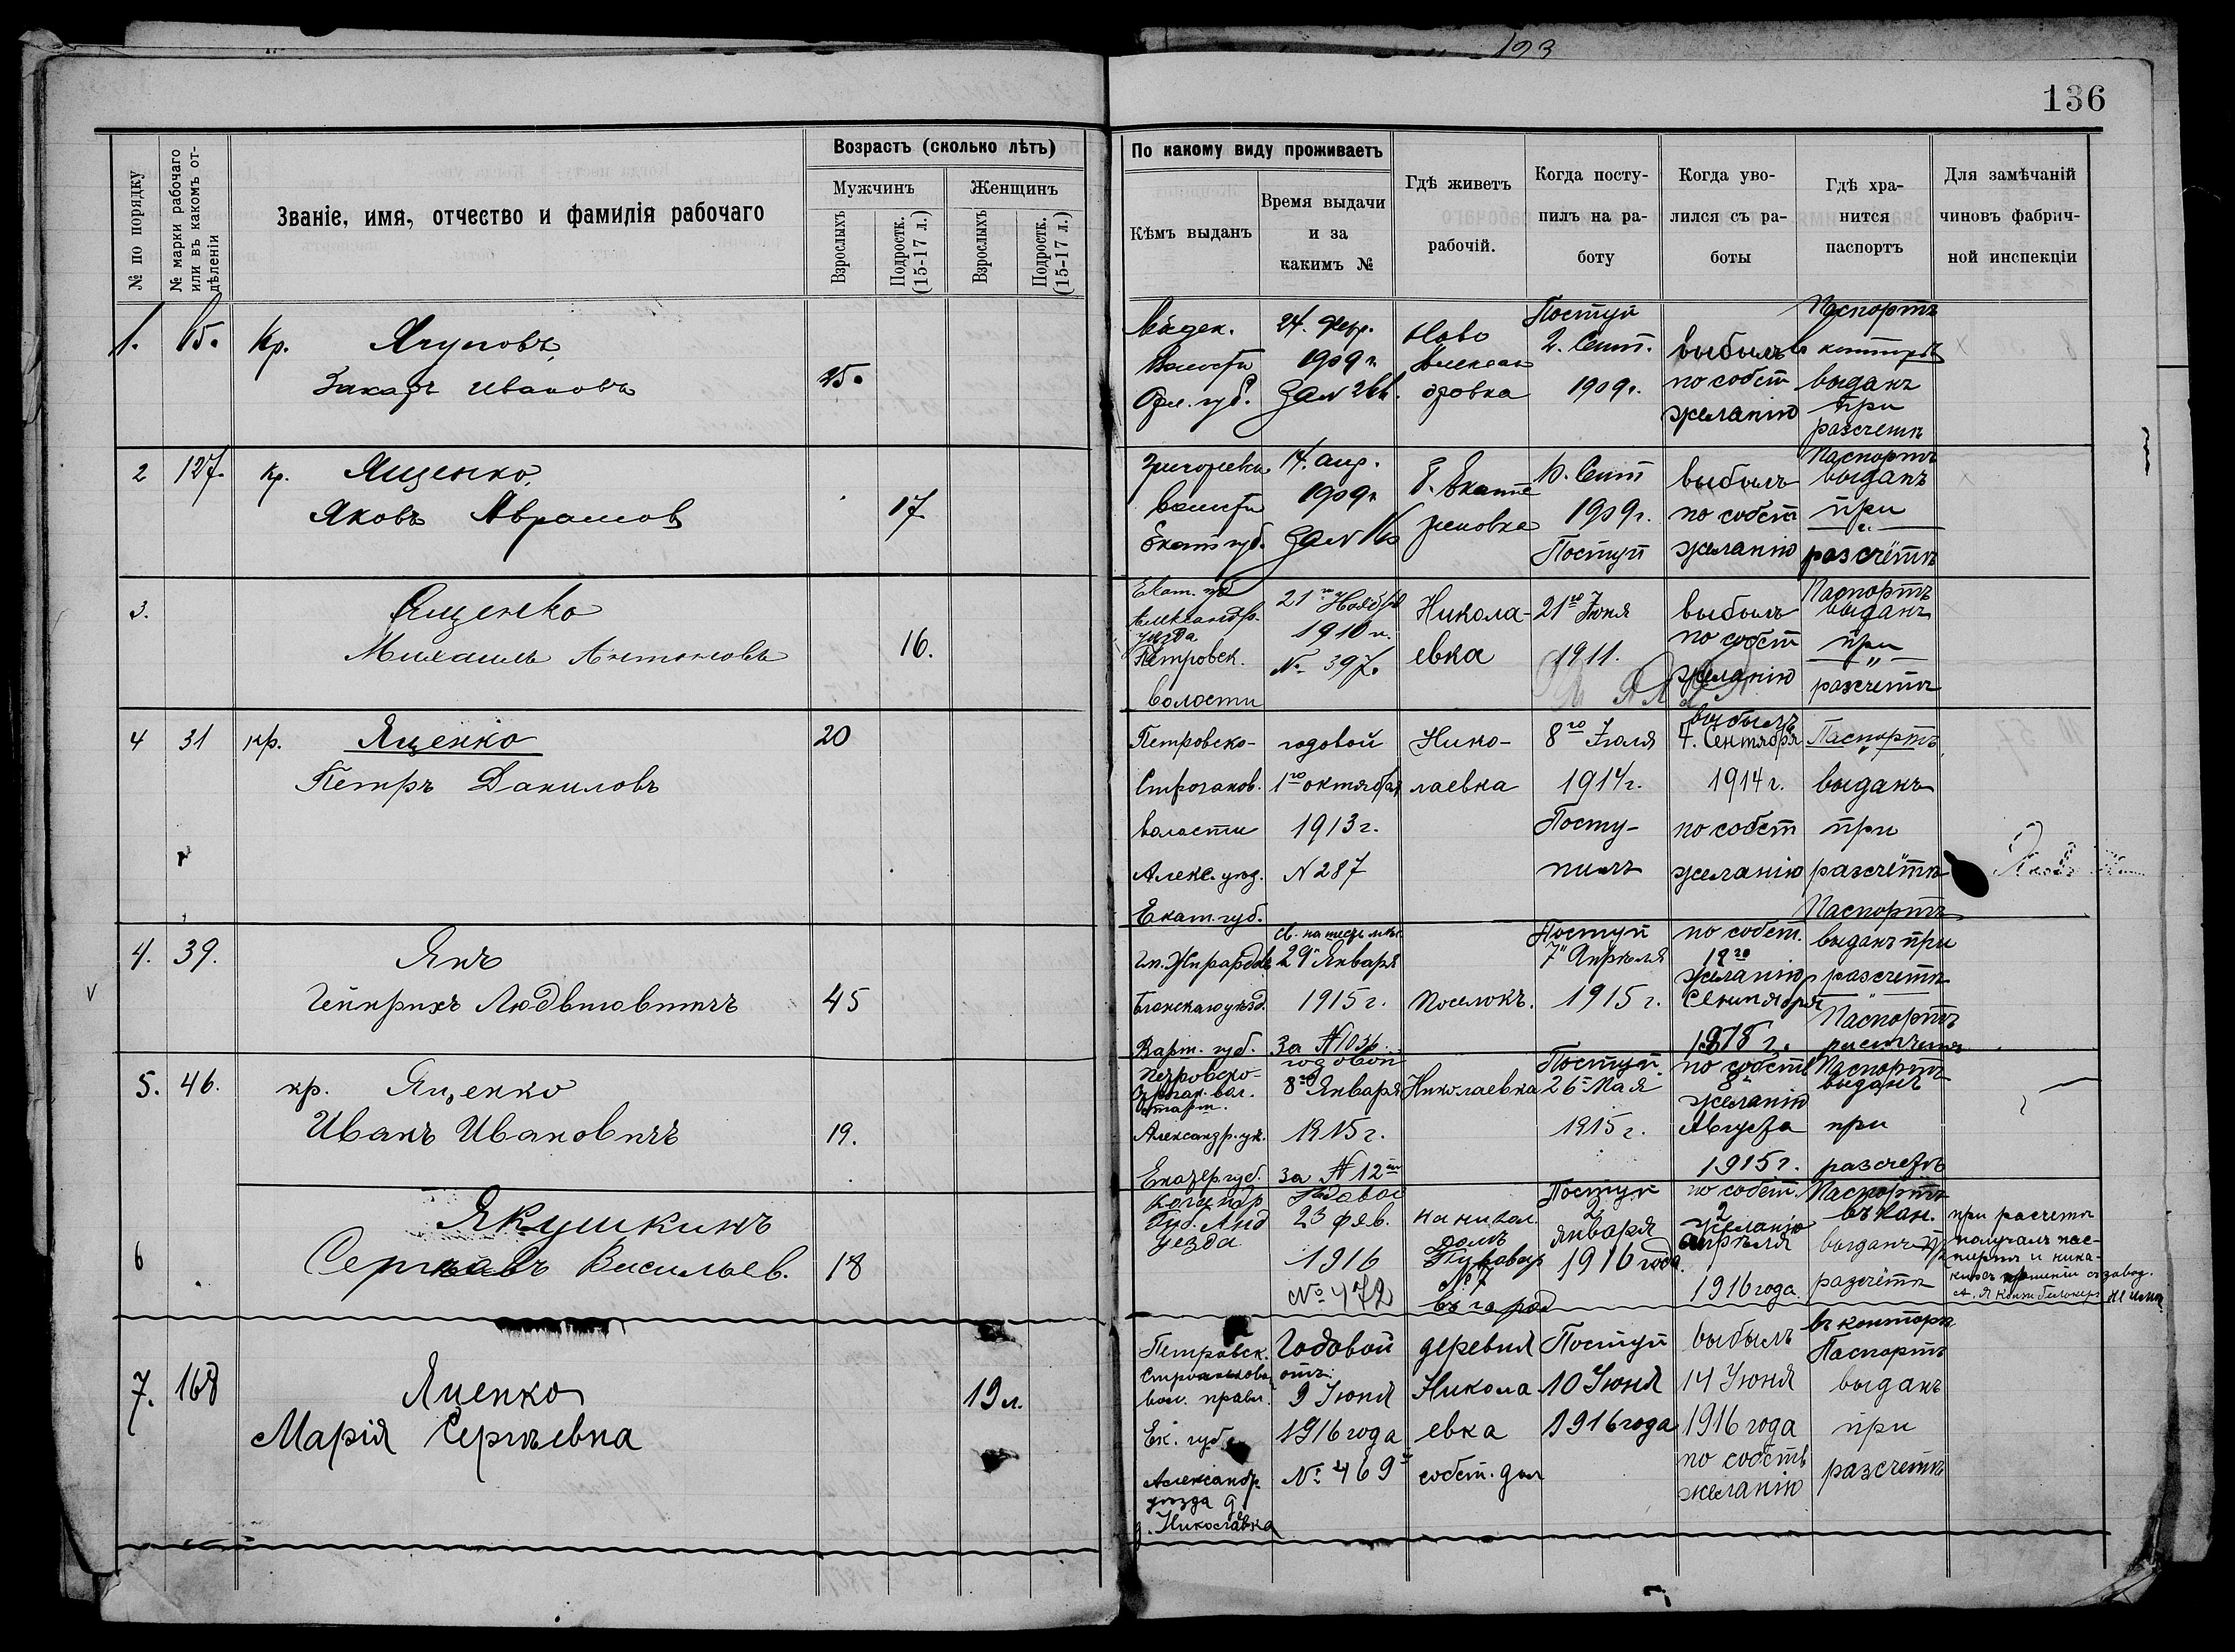 193
136
№ по порядку
№ марки рабочаго или въ какомъ отдѣленіи
Званіе, имя, отчество и фамилія рабочаго
Возрастъ (сколько лѣтъ)
Мужчинъ
Женщинъ
Взрослыхъ
Подростк. (15-17 л.)
Взрослыхъ
Подростк. (15-17 л.)
По какому виду проживаетъ
Кѣмъ выданъ
Время выдачи
и за
какимъ №
Гдѣ живетъ
рабочій.
Когда посту-
пилъ на ра-
боту
Когда уво-
лился съ ра-
боты
Гдѣ хра-
нится
паспортъ
Для замѣчаній
чиновъ фабрич-
ной инспекціи
1.
Кр.
Захаръ Ивановъ
25.
волости
1909 г.
Ново
Алексан
дровка
Поступ
2. Сент.
1909 г.
выбылъ
по собст
желанію
Паспортъ
конторѣ
выданъ
при
разсчетѣ
2
127.
кр.
Ященко
Яковъ Аврамов
17.
волости
Екат губ.
14. апр.
1909 г.
Екате
риновка
Сент
1909 г.
Поступ
выбылъ
по собст
желанію
Паспортъ
выданъ
при
разсчётѣ
3.
Ященко
Михаилъ Антоновъ
16.
Екат. губ
Александр.
уѣзда
Петровск.
волости
21го Ноября
1910 г.
№ 397.
Никола-
евка
21го Іюня
1911.
выбылъ
по собст
желанію
Паспортъ
выданъ
при
разсчетѣ
4
31
кр.
Яценко
Петръ Даниловъ
20
Петровско-
Строганов.
волости
Алекс. уѣзд.
Екат. губ.
годовой
1го октября
1913 г.
N 287
Нико-
лаевка
8го Іюля
1914 г.
Посту-
пилъ
выбылъ
4. Сентября
1914 г.
по собст
желанію
Паспортъ
выданъ
при
разсчётѣ
4.
39.
Янъ
Гейнрихъ Людвиговичъ
45
гм. Жирардовъ
Блонскаго уѣзд.
Варш. губ.
29 Января
1915 г.
За №
Поселокъ.
Поступ
7 Апрѣля
1915 г.
по собст.
18го
желанію
Сентября
Паспортъ
выданъ при
разсчетѣ
5.
46.
кр.
Яценко
Иванъ Ивановичъ
19.
Петровско-
вол.
Александр. уѣ.
Екатер. губ.
годовой
8го Января
1915 г.
за № 12
Николаевка
Поступ.
26 Мая
1915 г.
по собств
8
желанію
Августа
1915 г.
Паспортъ
выданъ
при
разсчетѣ
6
Якушкинъ
Василье​в.
18
губ. Лид
уезда
годовой
23 фев.
1916
№ 472
домъ
№ 7
въ город
Поступ
2
января
1916 года
по собст.
2
желанію
апрѣля
1916 года.
Паспортъ
въ кан.
выданъ при
разсчётѣ
при расчетѣ
получалъ пас-
портъ и ника-
7.
168
Яценко
Марія Сергѣевна
19 л.
Петровск.
вол. правл.
Ек. губ.
Александр.
уѣзда
Николаевка
Годовой
отъ
9 Іюня
1916 года
№ 469
деревня
Никола
евка
собст. дом
Поступ
10 Іюня
1916 года
выбылъ
14 Іюня
1916 года
по собств
желанію
въ конторѣ
Паспортъ
выданъ
при
разсчетѣ